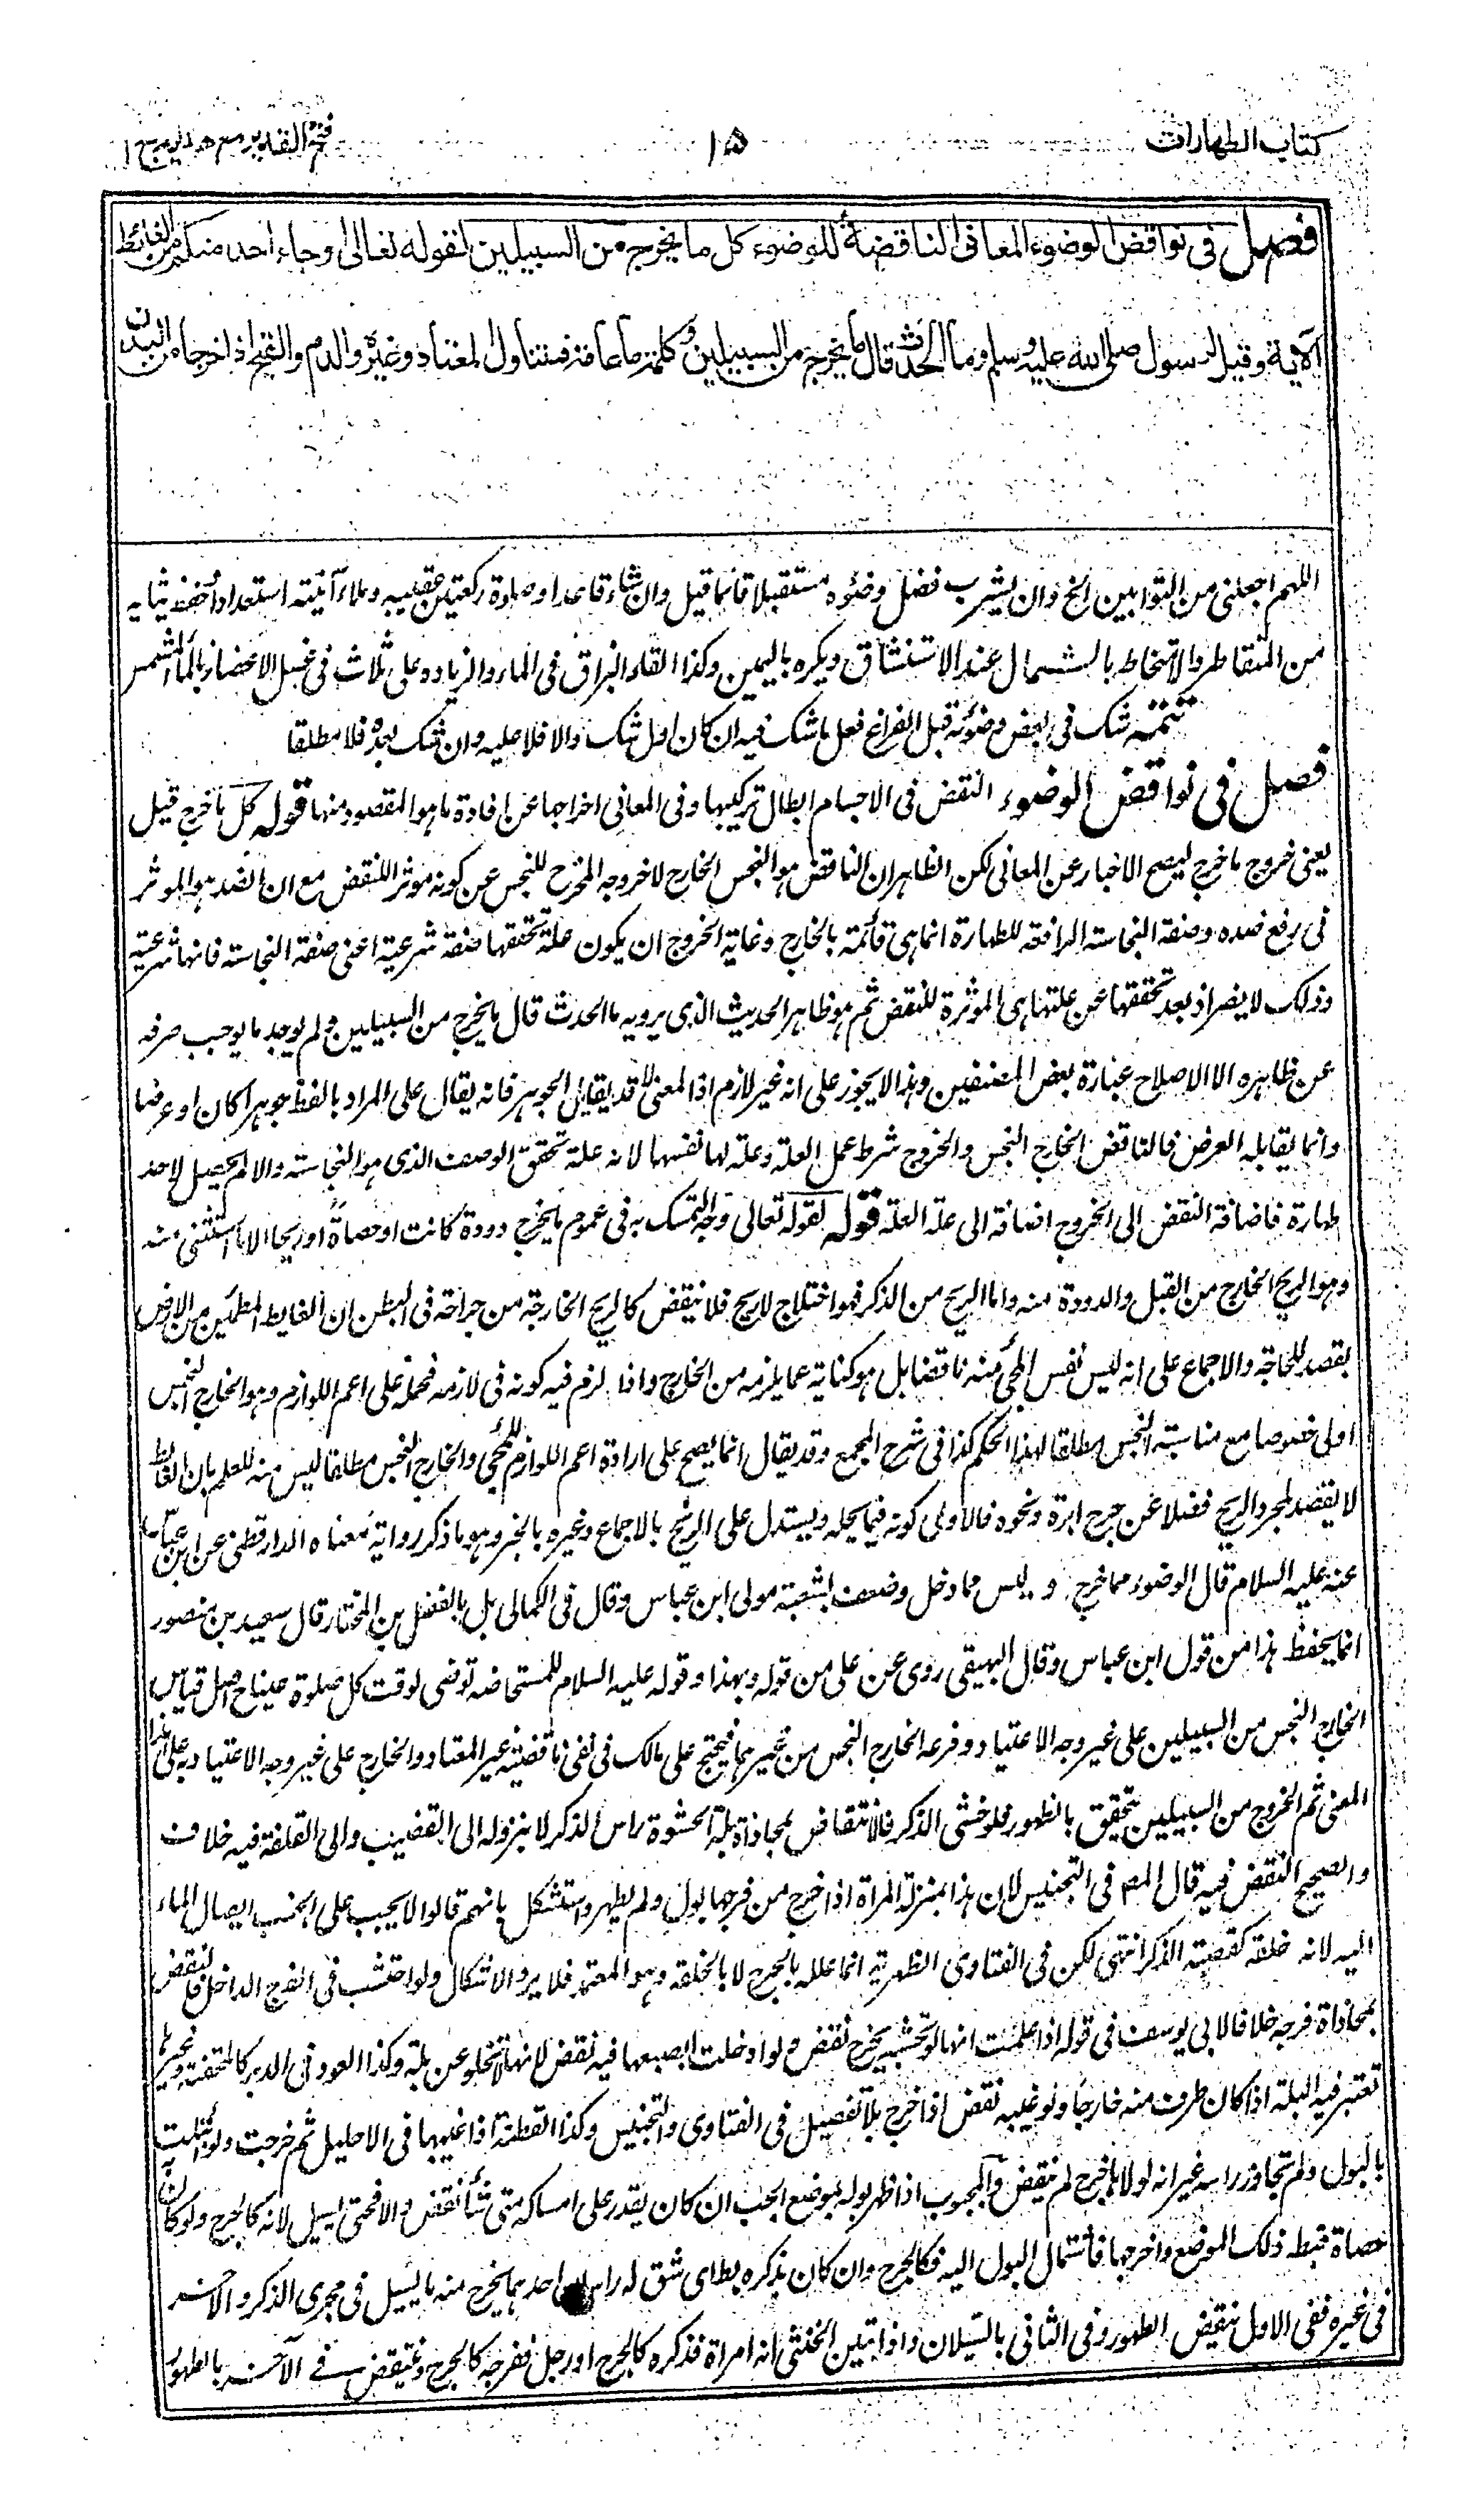 كتاب الطهارات
١٥
فتح القدير مع هدايه ج ١
فصل في نواقض الوضوء المعاني الناقضة للوضوء كل ما يخرج من السبيلين لقوله تعالى وجاء احد منكم من الغائط
الآية وقيل لرسول صلى الله عليه وسلم وما الحدث قال ما يخرج من السبيلين وكلمة ما عامة فتتناول المعتاد وغيره والدم والقيح اذا خرجا من البدن
اللهم اجعلني من التوابين الخ وان يشرب فضل وضوئه مستقبلا قائما قيل وان شاء قاعدا وصلوة ركعتين عقيبه وملاء آنيته استعدادا وحفظ ثيابه
من المتقاطر والامتخاط بالشمال عند الاستنشاق ويكره باليمين وكذا القاء البزاق في الماء والزياده على ثلاث في غسل الاعضاء وبالماء المشمس
تتمه شك في بعض وضوئه قبل الفراغ فعل ما شك فيه ان كان اول شك والا فلا عليه وان شك بعده فلا مطلقا
فصل في نواقض الوضوء النقض في الاجسام ابطال تركيبها وفي المعاني اخراجها عن افادة ما هو المقصود منها قوله كل ما خرج قيل
يعني خروج ما خرج ليصح الاخبار عن المعاني لكن الظاهر ان الناقض هو النجس الخارج لا خروجه المخرج للنجس عن كونه موثر اللنقض مع ان الضد هو الموثر
في رفع ضده وصفة النجاسته الرافعه للطهارة انما هي قائمة بالخارج وغاية الخروج ان يكون علة تحققها صفة شرعية اعنى صفة النجاسته فانها شرعية
وذلك لا يضر اذ بعد تحققها عن علتها هي الموثرة للنقض ثم هو ظاهر الحديث الذي يرويه ما الحدث قال ما يخرج من السبيلين ولم يوجد ما يوجب صرفه
عن ظاهره الا الاصلاح عبارة بعض المصنفين وهذا لا يجوز على انه غير لازم اذ المعنى قد لا يقابل الجوهر فانه يقال على المراد باللفظ جوهرا كان او عرضا
وانما يقابله العرض فالناقض الخارج النجس والخروج شرط عمل العلة وعلة لها نفسها لانه علة تحقق الوصف الذي هو النجاسته والا لم يحصل لاحد
طهارة فاضافة النقض الى الخروج اضافة الى علة العلة قوله لقوله تعالى وجه التمسك به في عموم ما يخرج دودة كانت او حصاة او ريحا الا ما استثنى منه
وهو الريح الخارج من القبل والدودة منه واما الريح من الذكر فهو اختلاج لا ريح فلا ينقض كالريح الخارجة من جراحة في البطن ان الغايط المطمئن من الارض
يقصد للحاجة والاجماع على انه ليس نفس المجئ منه ناقضا بل هو كناية عما يلزمه من الخارج واذا لزم فيه كونه في لازمه فحمله على اعم اللوازم وهو الخارج النجس
اولى خصوصا مع مناسبته النجس مطلقا لهذا الحكم كذا في شرح المجمع وقد يقال انما يصح على ارادة اعم اللوازم للمجئ والخارج النجس مطلقا ليس منه للعلم بان الغائط
لا يقصد لمجرد الريح فضلا عن جرح ابرة ونحوه فالاولى كونه فيما يحله ويستدل على الريح بالاجماع وغيره بالخبر وهو ما ذكر رواية معناه الدارقطنى عن ابن عباس
عنه عليه السلام قال الوضوء مما خرج وليس مما دخل وضعف بشعبة مولى ابن عباس وقال في الكمال بل بالفضل بن المختار قال سعيد بن منصور
انما يحفظ هذا من قول ابن عباس وقال البيهقى روى عن على من قوله وبهذا وقوله عليه السلام للمستحاضه توضى لوقت كل صلوة حينا اصل قياس
الخارج النجس من السبيلين على غير وجه الاعتياد وفرعه الخارج النجس من غيرهما فيحتج على مالك في نفى ناقضية غير المعتاد والخارج على غير وجه الاعتياد به على هذا
المعنى ثم الخروج من السبيلين يتحقق بالظهور فلو حشى الذكر فالانتقاض بمحاذاة بلة الحشوة راس الذكر لا بنزوله الى القصبة والى القلفة فيه خلاف
والصحيح النقض فيه قال المصـ في التجنيس لان هذا بمنزلة المراة اذا خرج من فرجها بول ولم يظهر واستشكل بانهم قالوا لا يجب على الجنب ايصال الماء
اليه لانه خلقة كقصبة الذكر انتهى لكن في الفتاوى الظهيرية انما علله بالحرج لا بالخلقة وهو المعتمد فلا يرد الاشكال ولو احتشت في الفرج الداخل فالنقض
بمحاذاة فرجه خلافا لابى يوسف في قوله اذا علمت انها لو لم تحتشه يخرج نقض ولو ادخلت اصبعها فيه نقض لانها لا تخلو عن بلة وكذا العود في الدبر كالمحقنة وغيرها
تعتبر فيه البلة اذا كان طرف منه خارجا ولو غيبه نقض اذا خرج بلا تفصيل في الفتاوى والتجنيس وكذا القطنة اذا غيبها في الاحليل ثم خرجت ولو ابتلت
بالبول ولم تجاوز راسه غير انه لولاها خرج لم ينقض والمجبوب اذا ظهر بوله بموضع الجب ان كان يقدر على امساكه متى شأ نقض والا فحتى يسيل لانه كالجرح ولو كان
حصاة فبط ذلك الموضع واخرجها فاستمال البول اليه فكالجرح وان كان بذكره بط اى شق له راسان احدهما يخرج منه ما يسيل في مجرى الذكر والآخر
في غيره ففى الاول ينقض الظهور وفى الثانى بالسيلان واذا تبين الخنثى انه امراة فذكره كالجرح او رجل ففرجه كالجرح وينقض في الآخر بالظهور